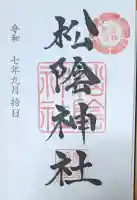 松陰神社
令和 七年九月拾日